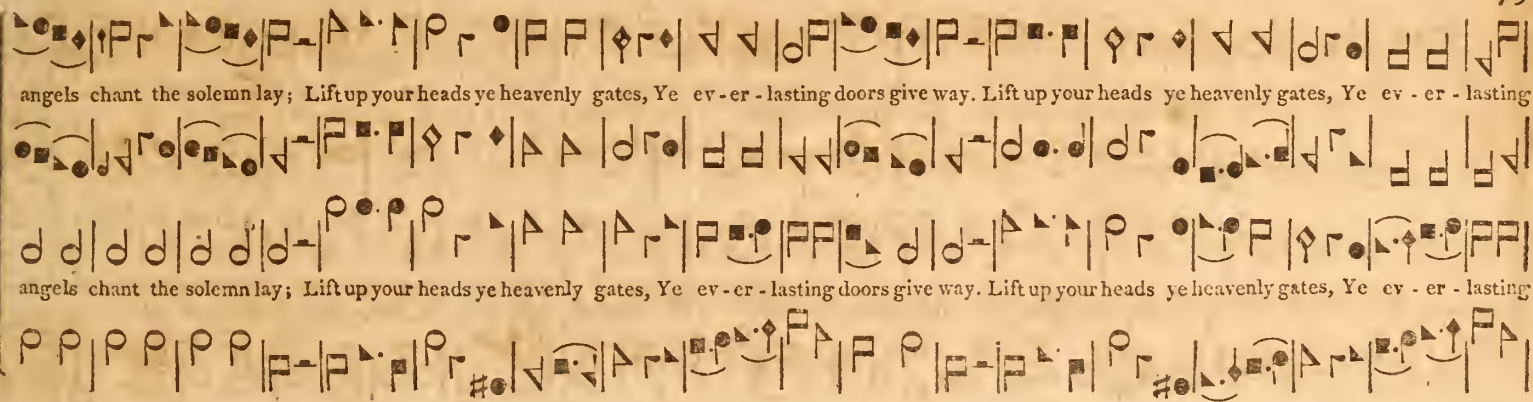 angels chant the solemn lay; Lift up your heads ye heavenly gates, Ye ev - er - lasting doors give way. Lift up your heads ye heavenly gates, Ye ev - er - lasting
angels chant the solemn lay; Lift up your heads ye heavenly gates, Ye ev - er - lasting doors give way. Lift up your heads ye heavenly gates, Ye ev - er - lasting